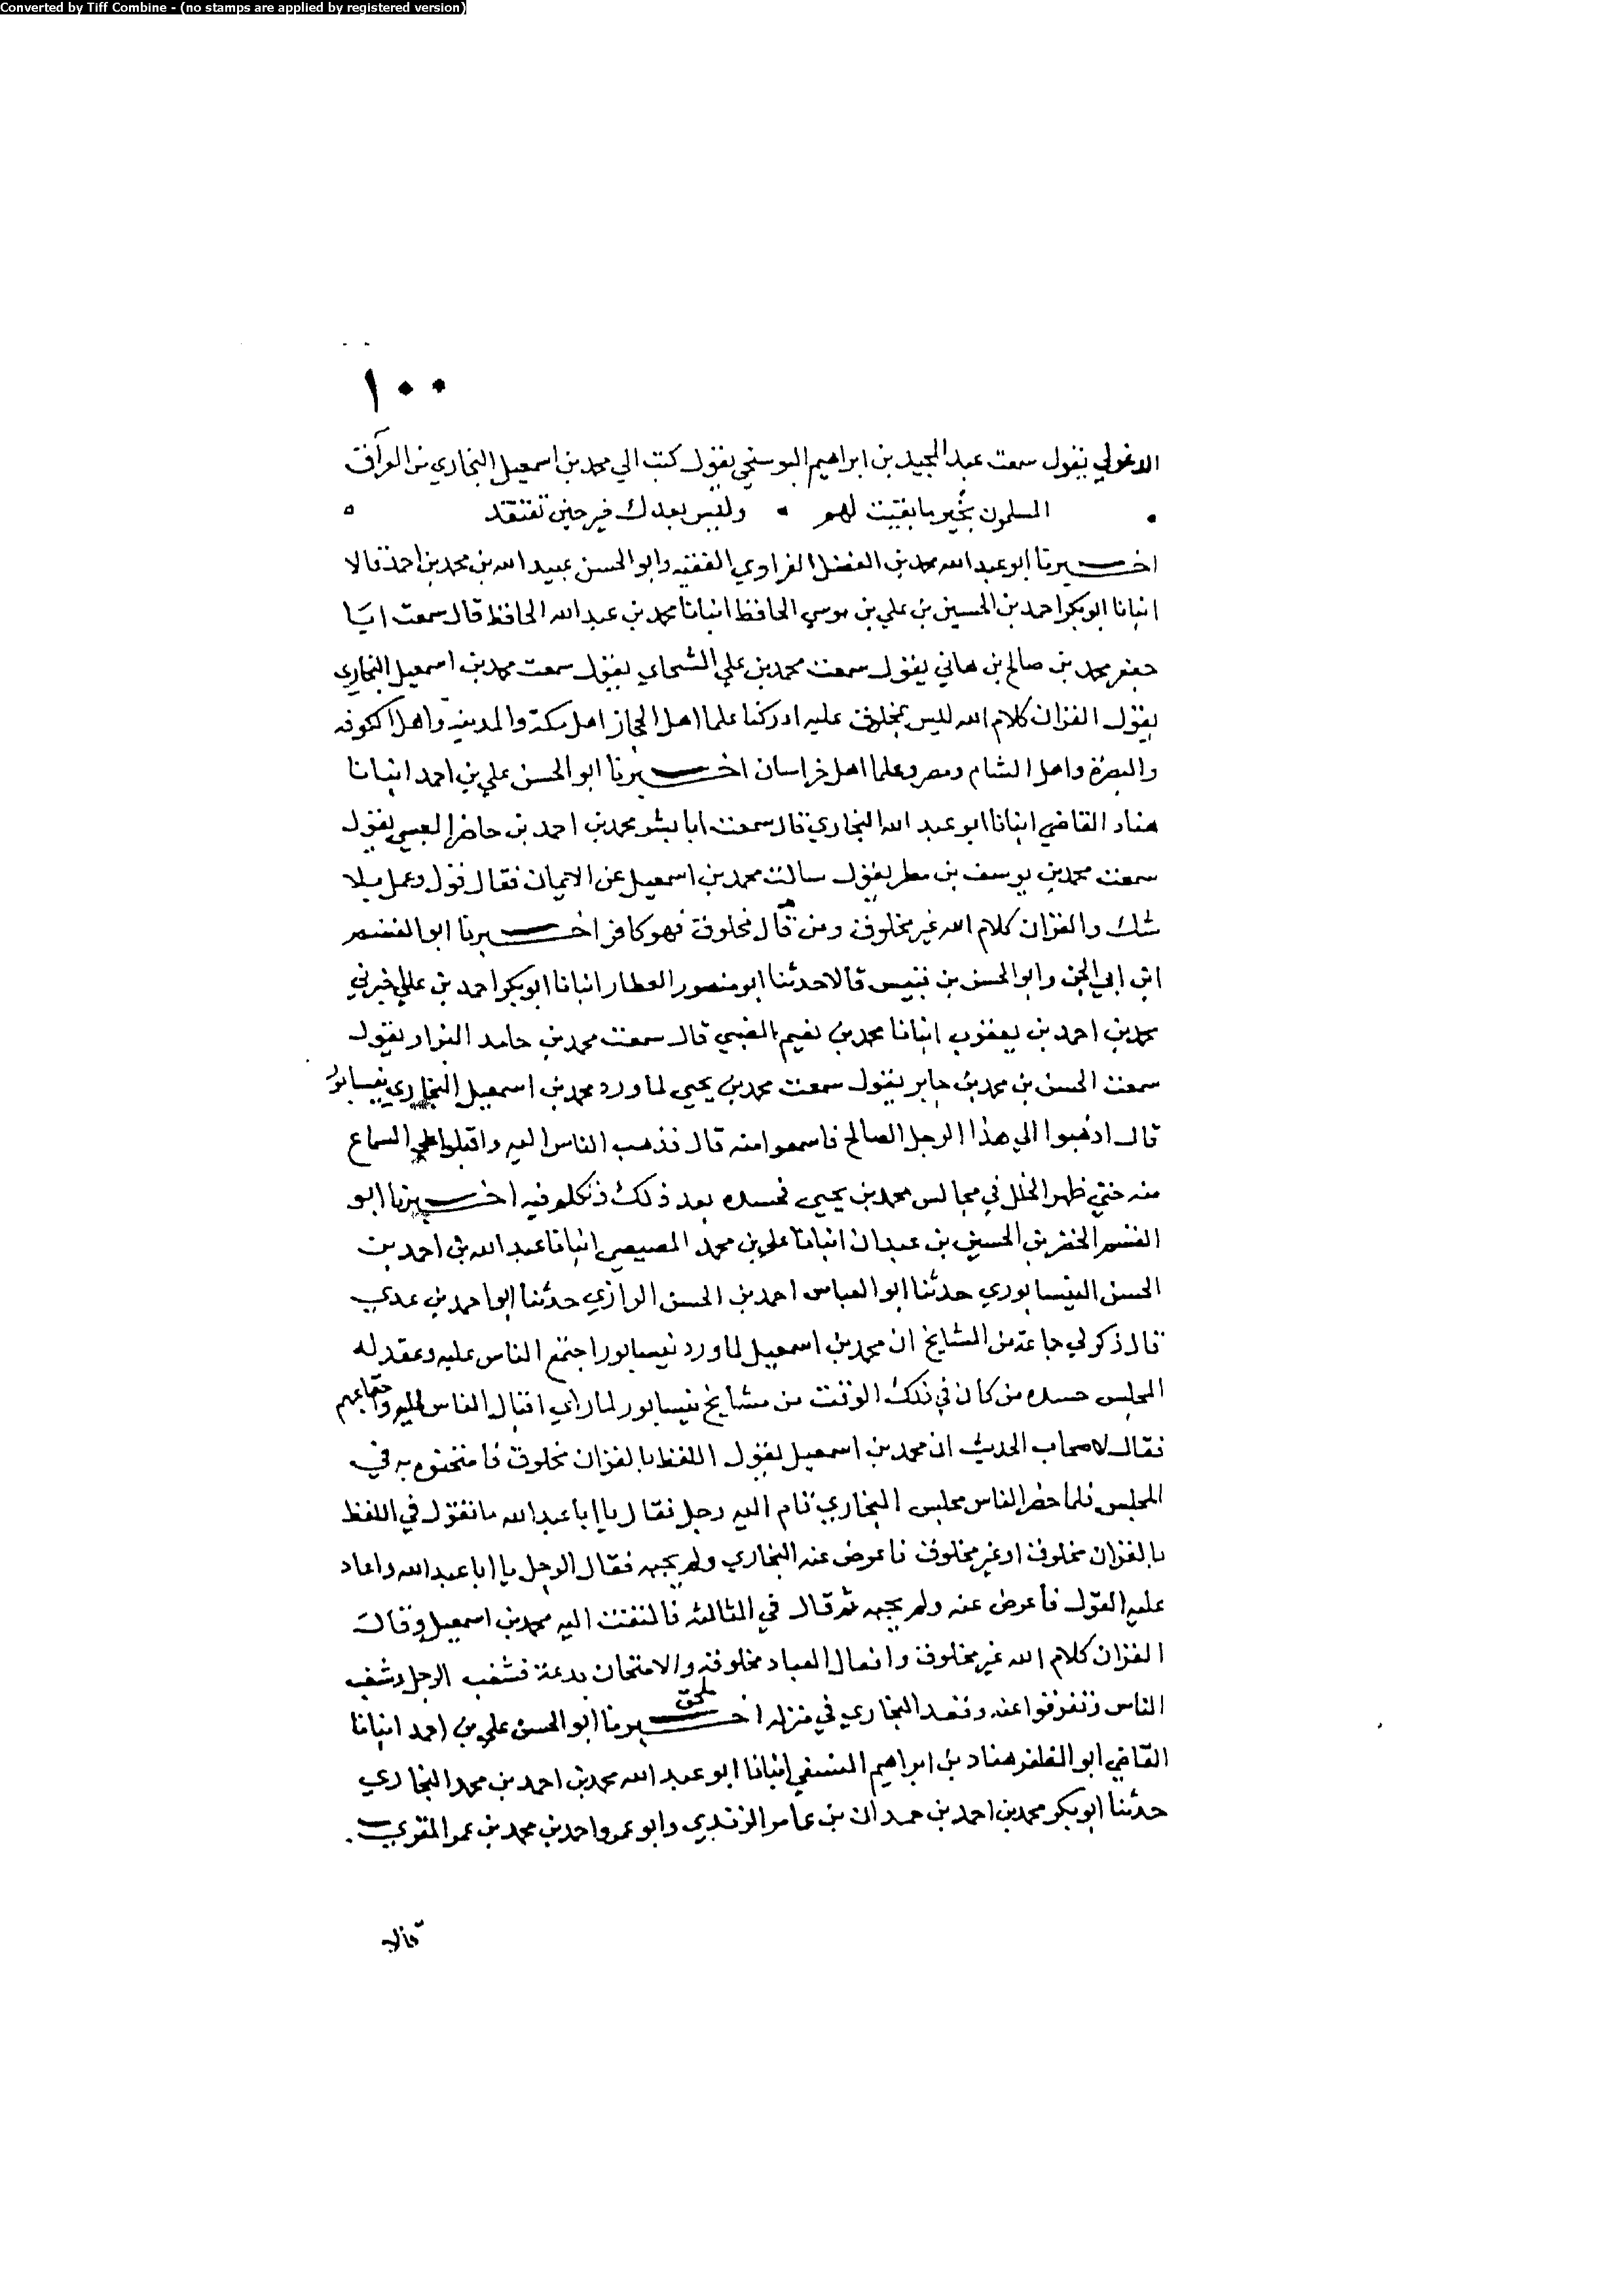 Converted by Tiff Combine - (no stamps are applied by registered version)
١٠٠
الدغولي يقول سمعت عبد المجيد بن ابراهيم البوسنجي يقول كتب الي محمد بن اسمعيل البخاري من العراق
المسلمون بخير ما بقيت لهم وليس بعدك خير حين تفتقد
اخبرنا ابو عبد الله محمد بن الفضل الفراوي الفقيه وابو الحسن عبيد الله بن محمد بن احمد قالا
انبانا ابو بكر احمد بن الحسين بن علي بن موسي الحافظ انبانا محمد بن عبد الله الحافظ قال سمعت ابا
جعفر محمد بن صالح بن هاني يقول سمعت محمد بن علي يقول سمعت محمد بن اسمعيل البخاري
يقول القران كلام الله ليس بمخلوق عليه ادركنا علما اهل الحجاز اهل مكة والمدينة واهل الكوفه
والبصرة واهل الشام ومصر وعلما اهل خراسان اخبرنا ابو الحسن علي بن احمد انبانا
هناد القاضي انبانا ابو عبد الله البخاري قال سمعت ابا بشر محمد بن احمد بن حاضر العبسي يقول
سمعت محمد بن يوسف بن مطر يقول سالت محمد بن اسمعيل عن الايمان فقال قول وعمل بلا
شك والقران كلام الله غير مخلوق ومن قال مخلوق فهو كافر اخبرنا ابو القسم
ابن ابي الجن وابو الحسن بن قبيس قالا حدثنا ابو منصور العطار انبانا ابو بكر احمد بن علي اخبرني
محمد بن احمد بن يعقوب انبانا محمد بن نعيم الضبي قال سمعت محمد بن حامد البزار يقول
سمعت الحسن بن محمد بن جابر يقول سمعت محمد بن يحيي لما ورد محمد بن اسمعيل البخاري نيسابور
قال اذهبوا الي هذا الرجل الصالح فاسمعوا منه قال فذهب الناس اليه واقبلوا علي السماع
منه حتي ظهر الخلل في مجالس محمد بن يحيي فحسده بعد ذلك فتكلم فيه اخبرنا ابو
القسم الخضر بن الحسين بن عبدان انبانا علي بن محمد المصيصي انبانا عبد الله بن احمد بن
الحسن النيسابوري حدثنا ابو العباس احمد بن الحسن الرازي حدثنا ابو احمد بن عدي
قال ذكر لي جماعة من المشايخ ان محمد بن اسمعيل لما ورد نيسابور اجتمع الناس عليه وعقد له
المجلس حسده من كان في ذلك الوقت من مشايخ نيسابور لما راي اقبال الناس اليه واجتماعهم
فقال لاصحاب الحديث ان محمد بن اسمعيل يقول اللفظ بالقران مخلوق فامتحنوه به في
المجلس فلما حضر الناس مجلس البخاري قام اليه رجل فقال يا ابا عبد الله ما تقول في اللفظ
بالقران مخلوق او غير مخلوق فاعرض عنه البخاري ولم يجبه فقال الرجل يا ابا عبد الله واعاد
عليه القول فاعرض عنه ولم يجبه ثم قال في الثالثه فالتفت اليه محمد بن اسمعيل وقال
القران كلام الله غير مخلوق وافعال العباد مخلوقه والامتحان بدعة فشغب الرجل وشغب
الناس وتفرقوا عنه وقعد البخاري في منزله ملحق اخبرنا ابو الحسن علي بن احمد انبانا
القاضي ابو المظفر هناد بن ابراهيم النسفي انبانا ابو عبد الله محمد بن احمد بن محمد البخاري
حدثنا ابو بكر محمد بن احمد بن حمدان بن عامر الزندي وابو عمرو احمد بن محمد بن عمر المقري
قالا